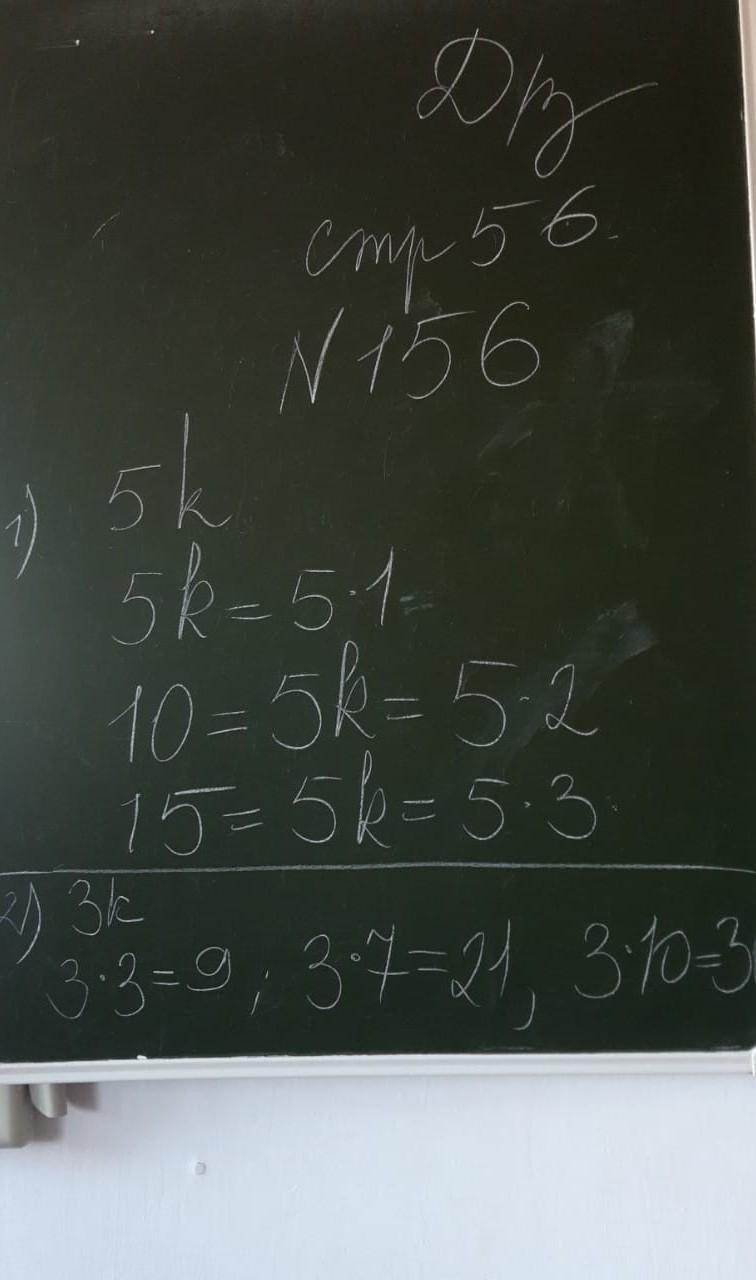 Дз
стр 56.
N 156
1) 5k
5k = 5·1 =
10 = 5k = 5·2
15 = 5k = 5·3
2) 3k
3·3=9; 3·7=21, 3·10=3